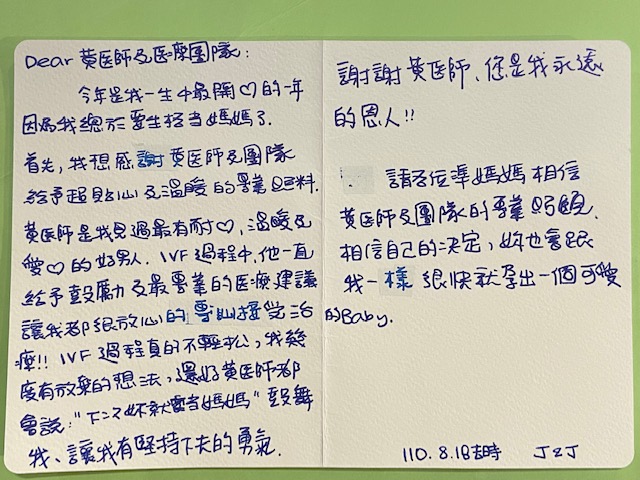 Dear 黃医師及医療團隊：
今年是我一生中最開♡的一年
因為我總於要生格当媽媽了.
首先, 我想感謝黃医師及團隊
給予超貼心及溫暖的專業照料.
黃医師是我見過最有耐♡, 溫暖又
愛♡的好男人. IVF 過程中, 他一直
給予鼓勵及最專業的医療建議
讓我都很放心的專心接受治
療!! IVF 過程真的不輕松, 我幾
度有放棄的想法, 還好黃医師都
會說: "下次妳就要当媽媽" 鼓舞
我、讓我有堅持下去的勇氣.
謝謝黃医師、您是我永遠
的恩人!!
請各位準媽媽相信
黃医師及團隊的專業照顧.
相信自己的決定, 妳也會跟
我一樣很快就孕出一個可愛
的Baby.
110. 8. 18 JZJ